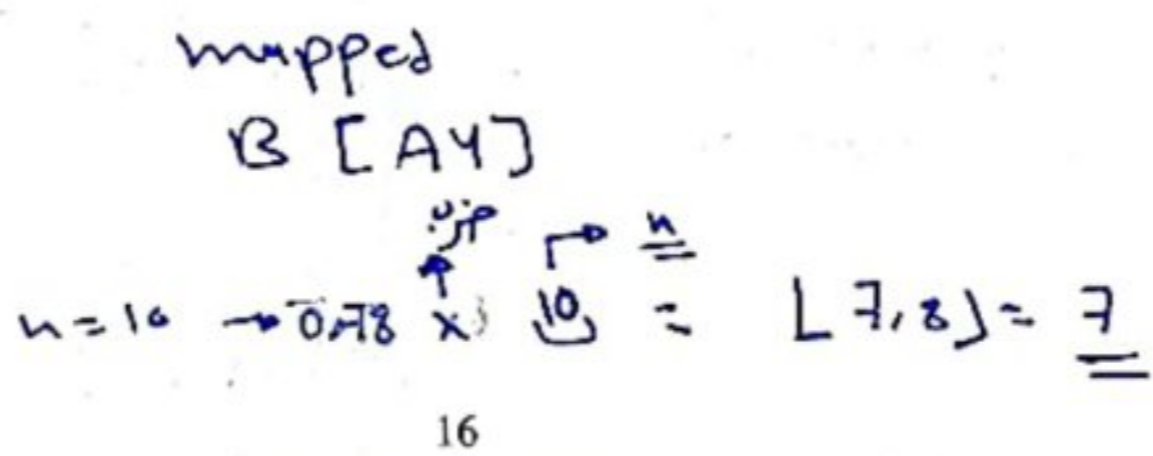 mapped
B [AY]
ضرب
n
n = 10 → 0.78 x 10 = ⌊7,8⌋ = 7
16